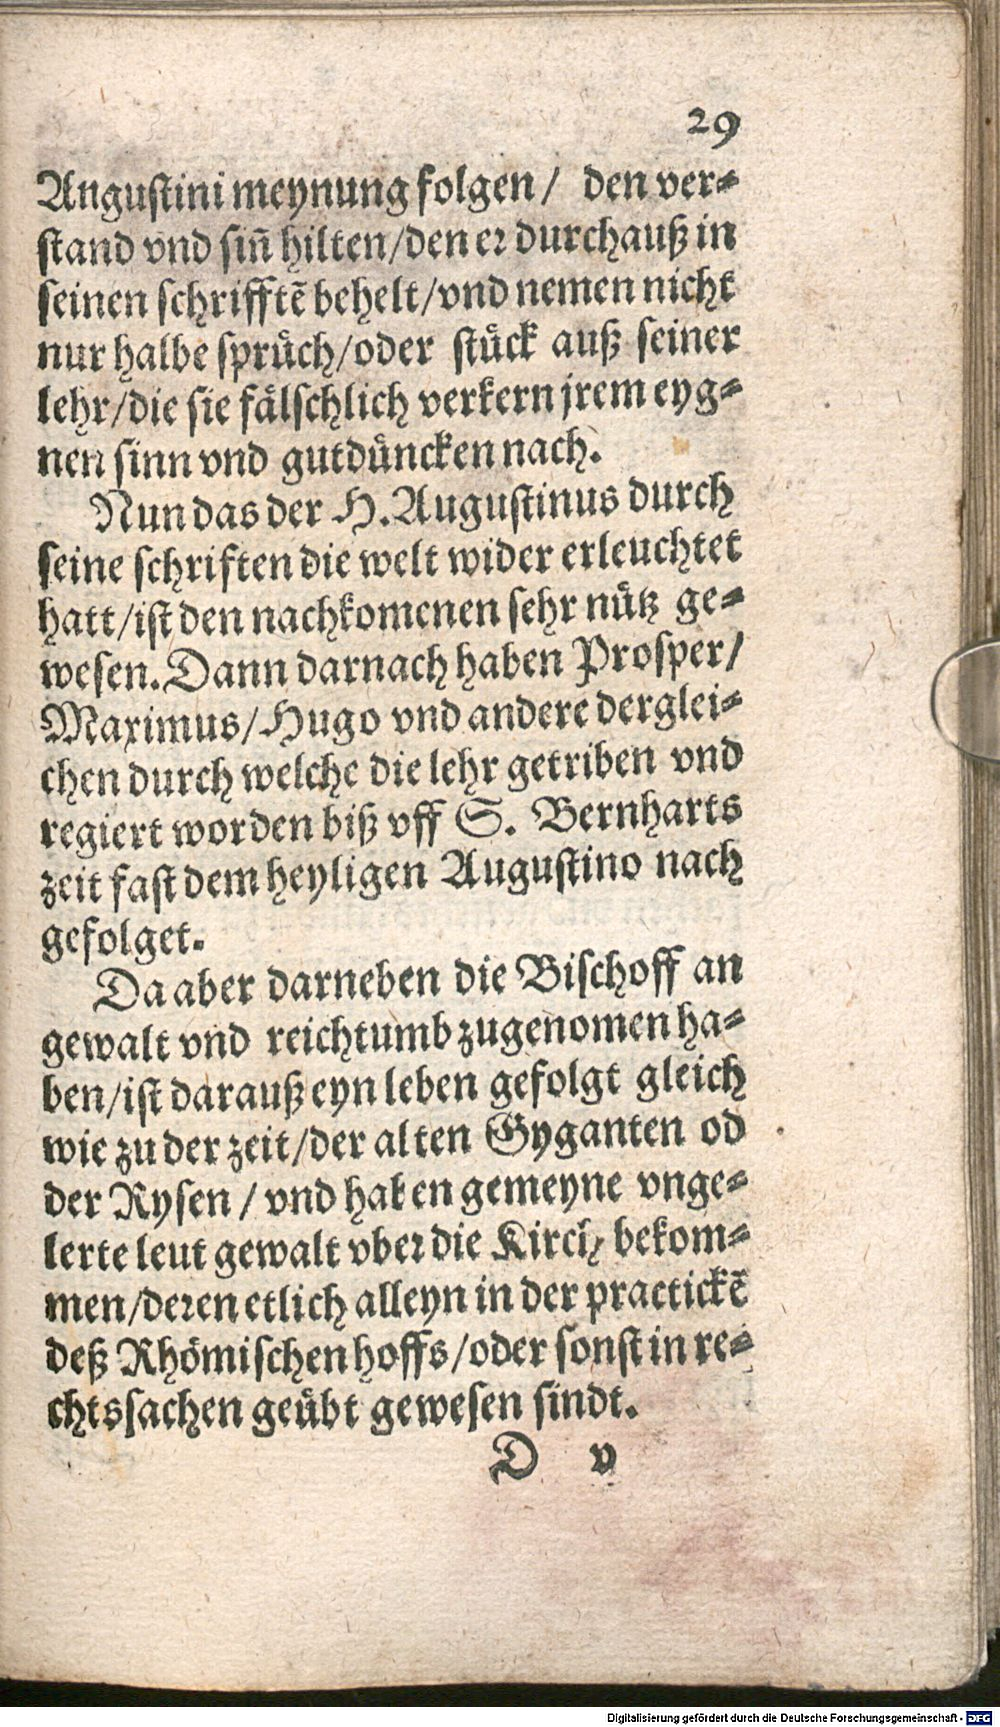 29
Angustini meynung folgen / den ver-
stand vnd siñ hilten/den er durchauß in
seinen schrifftẽ behelt/vnd nemen nicht
nur halbe sprüch/oder stück auß seiner
lehr/die sie fälschlich verkern jrem eyg-
nen sinn vnd gutdüncken nach.
Nun das der H. Augustinus durch
seine schriften die welt wider erleuchtet
hatt/ist den nachkomenen sehr nütz ge-
wesen. Dann darnach haben Prosper/
Maximus/Hugo vnd andere derglei-
chen durch welche die lehr getriben vnd
regiert worden biß vff S. Bernharts
zeit fast dem heyligen Augustino nach
gefolget.
Da aber darneben die Bischoff an
gewalt vnd reichtumb zugenomen ha-
ben/ist darauß eyn leben gefolgt gleich
wie zu der zeit/der alten Gyganten od
der Rysen / vnd haben gemeyne vnge-
lerte leut gewalt vber die Kirch bekom-
men/deren etlich alleyn in der practickẽ
deß Rhömischen hoffs/oder sonst in re-
chtssachen geübt gewesen sindt.
D v
Digitalisierung gefördert durch die Deutsche Forschungsgemeinschaft - DFG